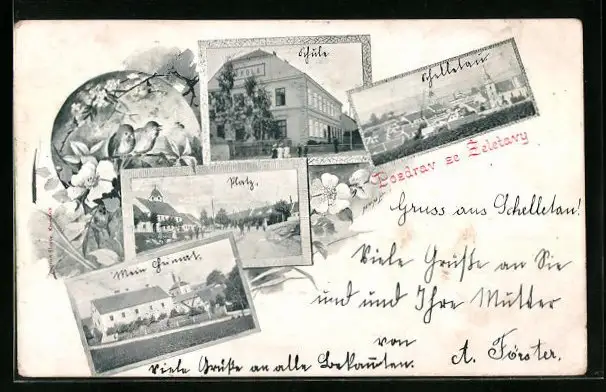 Schule
ŠKOLA
Schelletau
Pozdrav ze Želetavy
Platz.
Gruss aus Schelletau!
Mein
Viele Grüße an Sie
und und Ihre Mutter
von
A. Förster.
Viele Grüße an alle Bekannten.